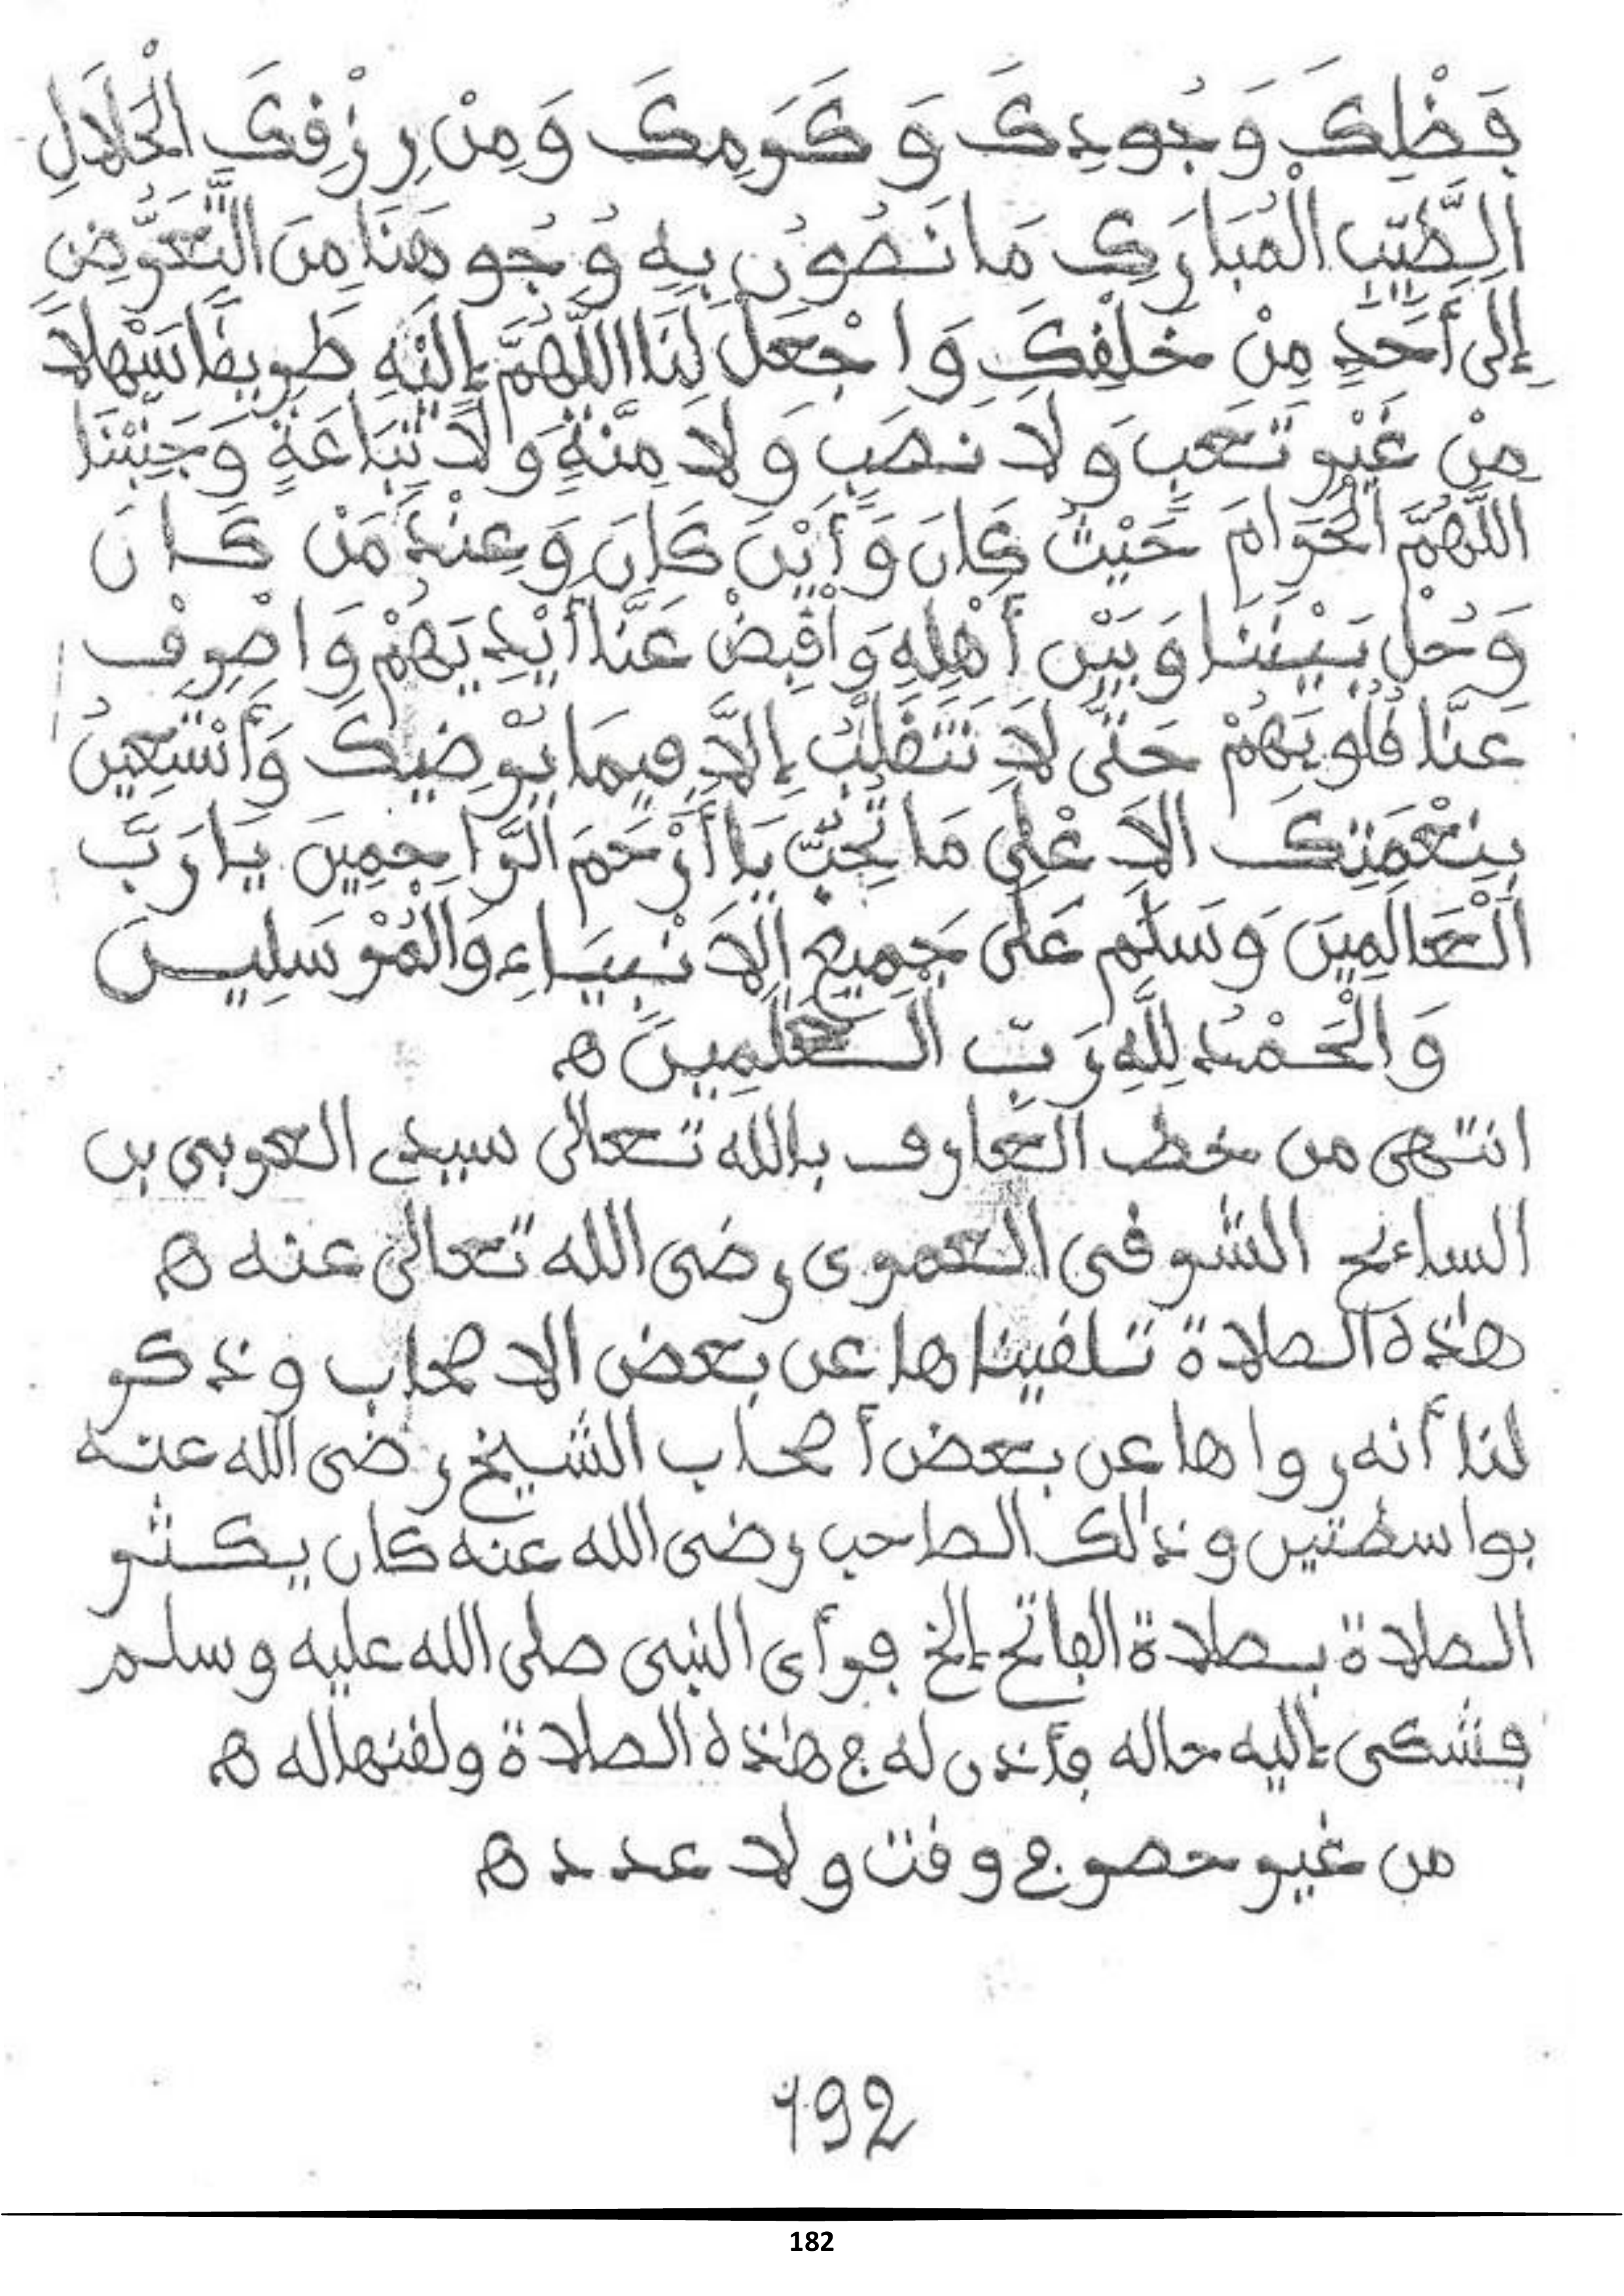 فَضْلِكَ وَجُودِكَ وَكَرَمِكَ وَمِنْ رِزْقِكَ الْحَلَالِ
الطَّيِّبِ الْمُبَارَكِ مَا نَصُونُ بِهِ وُجُوهَنَا مِنَ التَّعَرُّضِ
إِلَى أَحَدٍ مِنْ خَلْقِكَ وَاجْعَلْ لَنَا اللَّهُمَّ إِلَيْهِ طَرِيقًا سَهْلًا
مِنْ غَيْرِ تَعَبٍ وَلَا نَصَبٍ وَلَا مِنَّةٍ وَلَا تِبَاعَةٍ وَجَنِّبْنَا
اللَّهُمَّ الْحَرَامَ حَيْثُ كَانَ وَأَيْنَ كَانَ وَعِنْدَ مَنْ كَانَ
وَحُلْ بَيْنَنَا وَبَيْنَ أَهْلِهِ وَاقْبِضْ عَنَّا أَيْدِيَهُمْ وَاصْرِفْ
عَنَّا قُلُوبَهُمْ حَتَّى لَا نَتَقَلَّبُ إِلَّا فِيمَا يُرْضِيكَ وَأَنْسْتَعِينُ
بِنِعْمَتِكَ الَا عْلَى مَا تُحِبُّ يَا أَرْحَمَ الرَّاحِمِينَ يَا رَبَّ
الْعَالَمِينَ وَسَلِّم عَلَى جَمِيعِ الَانْبِيَاءِ وَالْمُرْسَلِينَ
وَالْحَمْدُ لِلَّهِ رَبِّ الْعَلَمِينَ ه
انتهى من خط العارف بالله تعالى سيدي العربى بن
السائح الشرقى العمرى رضى الله تعالى عنه ه
هذه الصلاة تلقيناها عن بعض الاصحاب وذكر
لنا أنه رواها عن بعض أصحاب الشيخ رضى الله عنه
بواسطتين وذلك الصاحب رضى الله عنه كان يكثر
الصلاة بصلاة الفاتح إلخ فرأى النبى صلى الله عليه وسلم
فشكى إليه حاله فأذن له ج هذه الصلاة ولقنها له ه
من غير حصر ج وقت ولا عدد ه
192
182